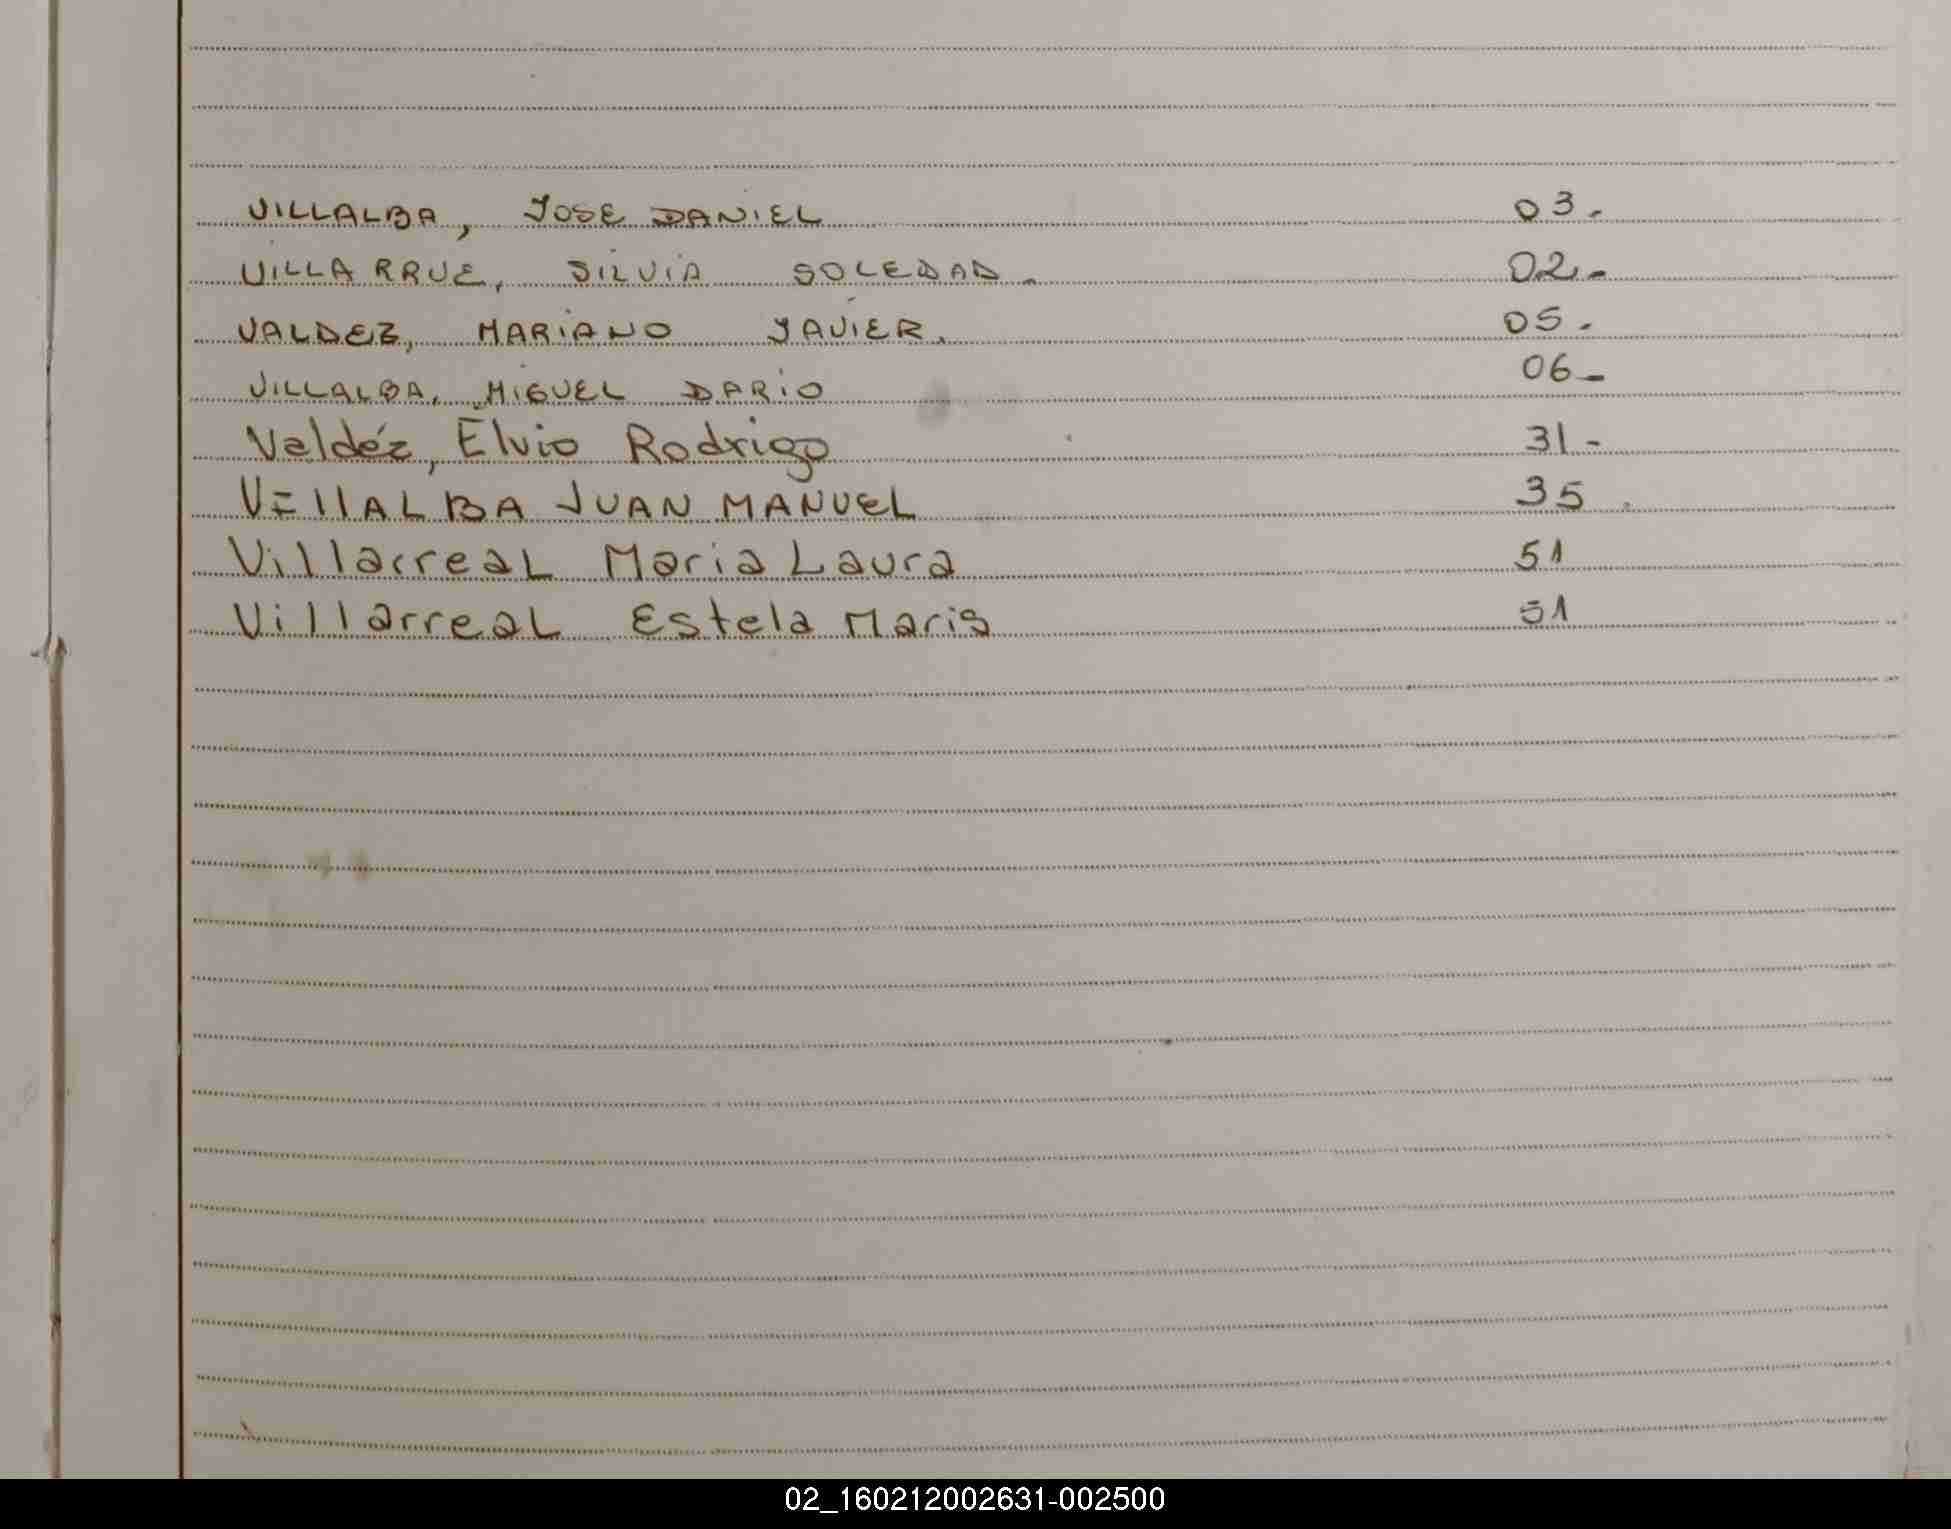 VILLALBA, JOSE DANIEL 03.
VILLARRUE, SILVIA SOLEDAD. 02.-
VALDEZ, MARIANO JAVIER. 05.
VILLALBA, MIGUEL DARIO 06-
Valdéz, Elvio Rodrigo 31-
VILLALBA JUAN MANUEL 35.
VillarreaL Maria Laura 51
VillarreaL Estela Maris 51
02_160212002631-002500